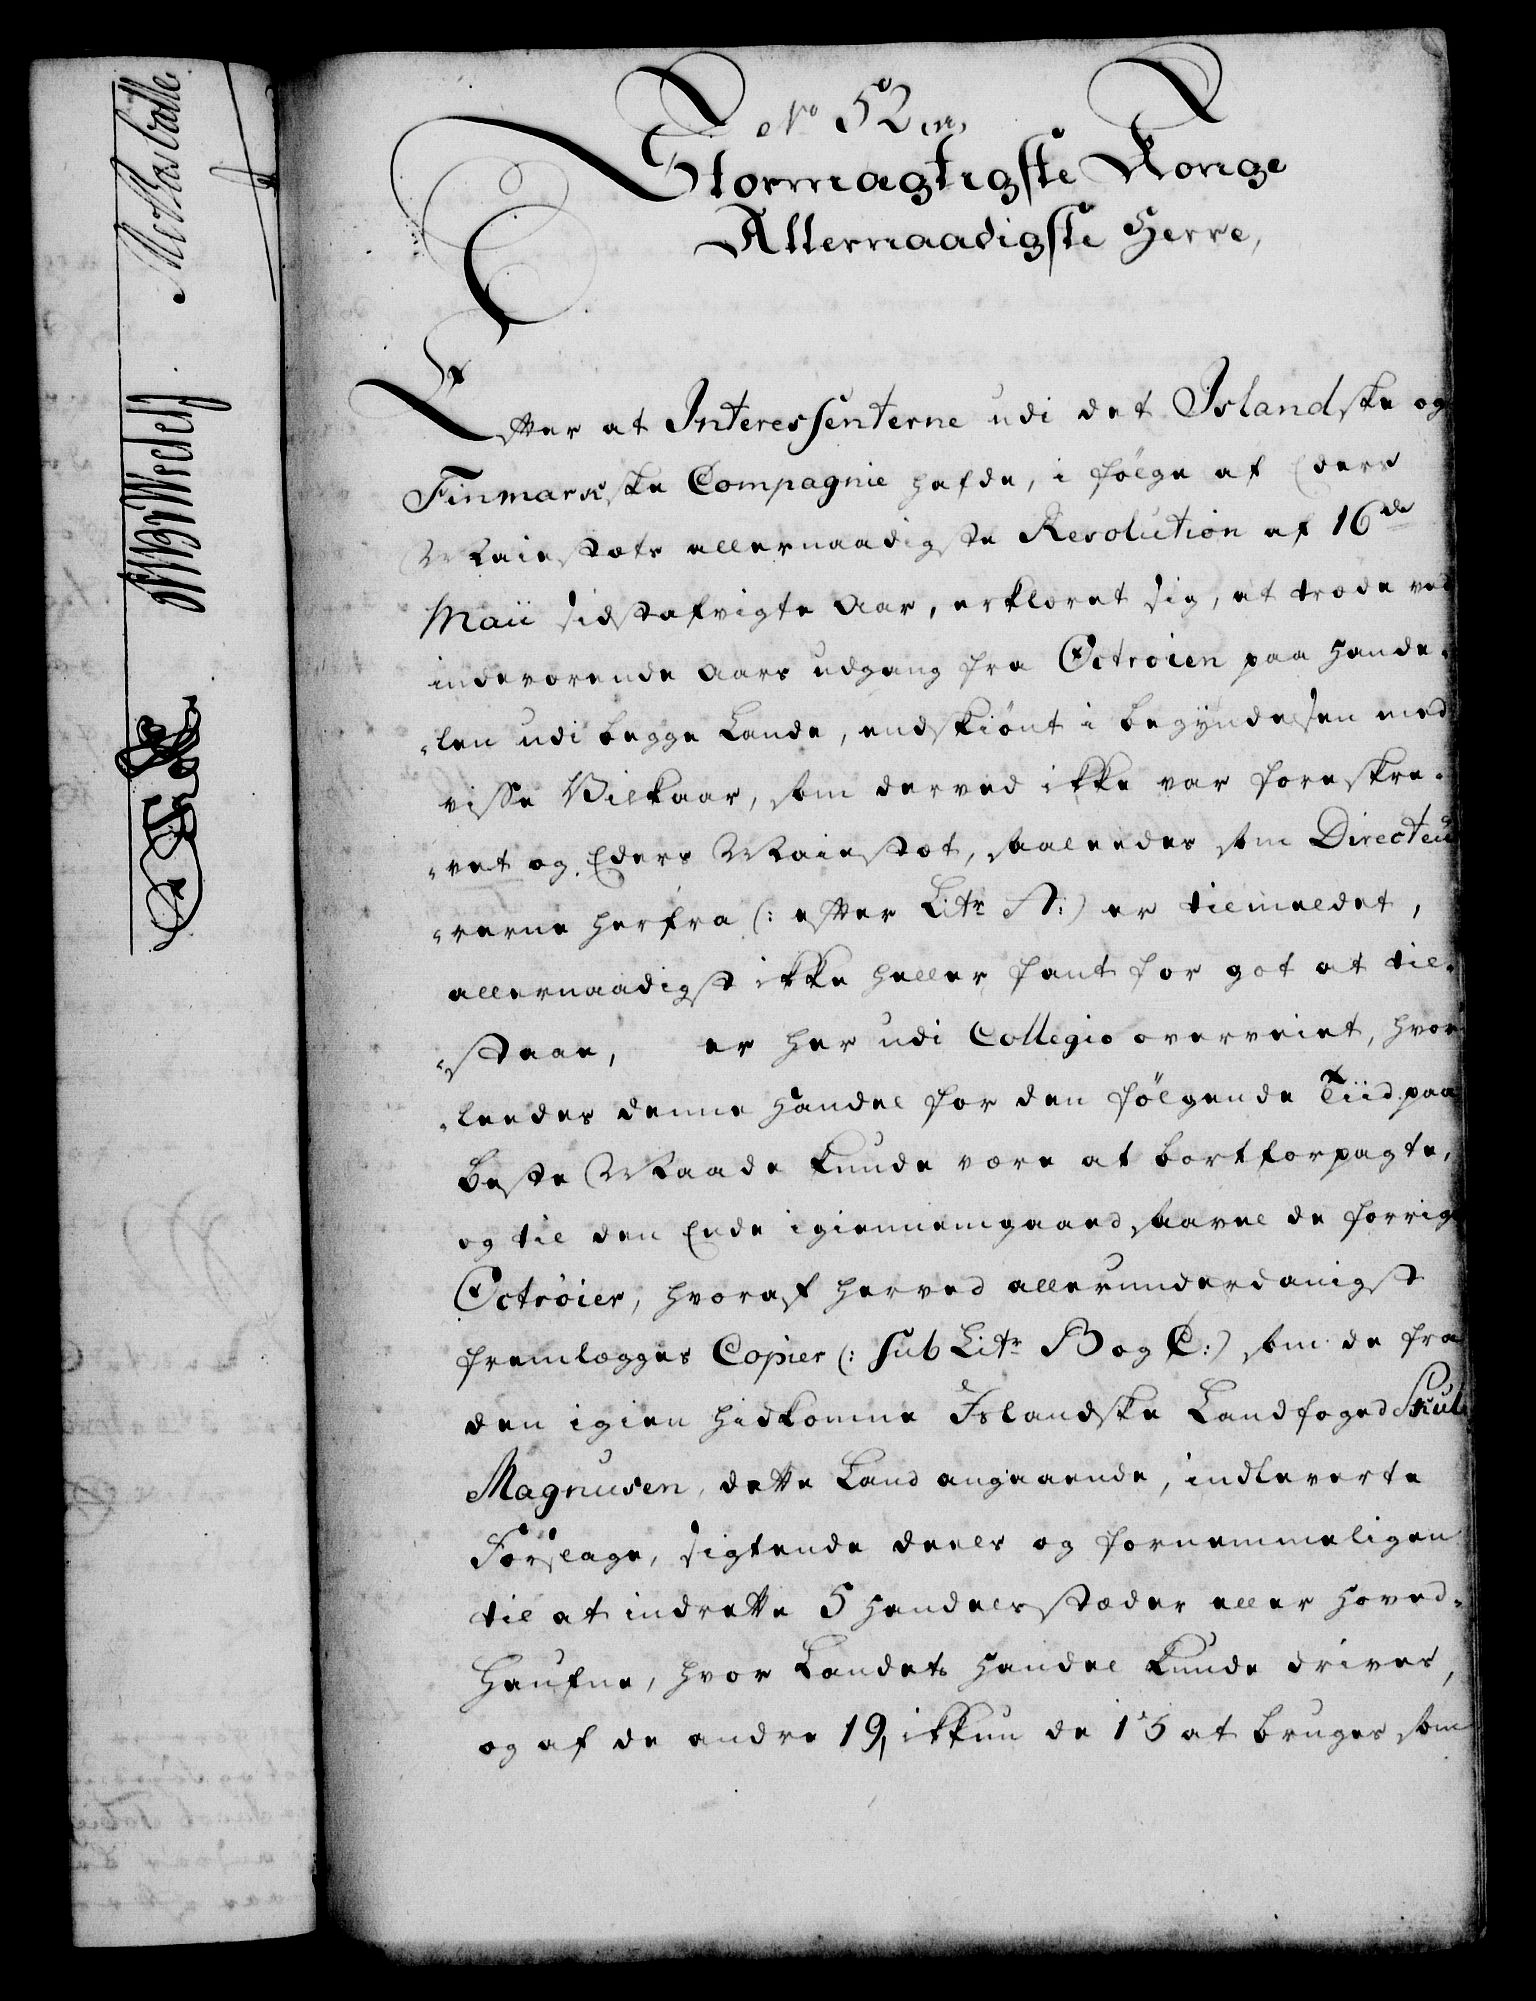 No 52
Stormægtigste Konge
Allernaadigste Herre,
Efter at Interessenterne udi det Islandske og
Finmarkske Compagnie hafde, i følge af Eders
Maiestæts allernaadigste Resolution af 16de
Maii sidstafvigte Aar, erklæret sig, at træde ved
indeværende Aars udgang fra Octroien paa Hande-
-len udi begge Lande, endskiønt i begyndelsen med
visse Vilkaar, som derved ikke var foreskre-
-vet og Eders Maiestæt, saaleedes som Directeu
-rerne herfra (: efter Litr A:) er tilmeldet,
allernaadigst ikke heller fant for got at til-
-staae, er her udi Collegio overveiet, hvor
-leedes denne Handel for den følgende Tiid paa
beste Maade kunde være at bortforpagte,
og til den Ende igiennemgaaed saavel de forrige
Octroier, hvoraf herved allerunderdanigst
fremlægges Copier (: sub Litr B og C:) som de fra
den igien hidkomne Islandske Landfoged Skule
Magnusen, dette Land angaaende, indleverte
Forslage, sigtende deels og fornemmeligen
til at indrette 5 Handelsstæder eller Hoved-
Haufne, hvor Landets Handel kunde drives,
og af de andre 19, ikkun de 15 at bruges som